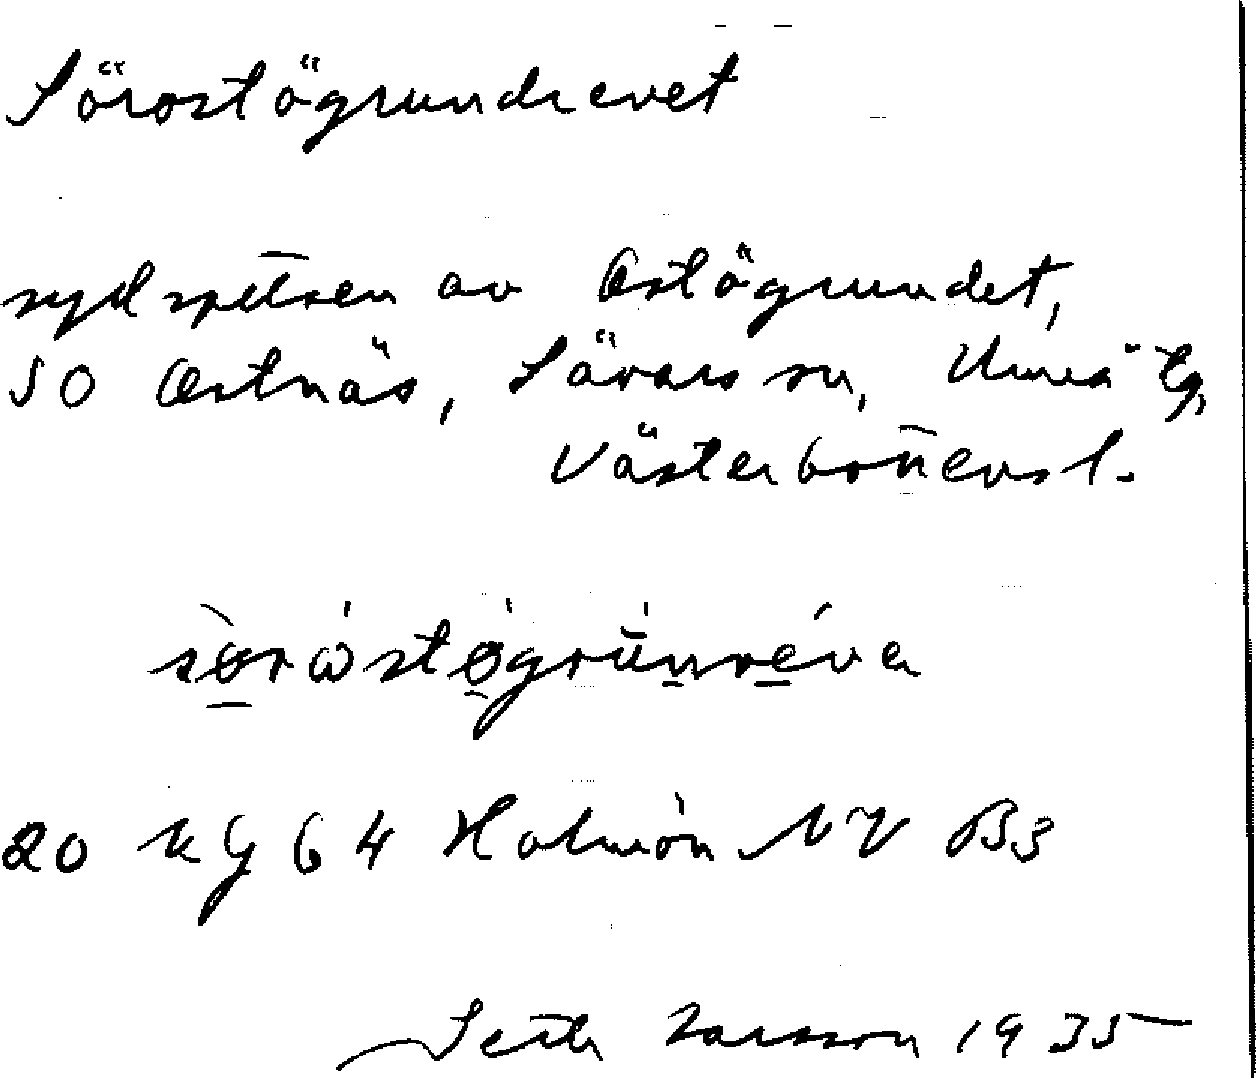 Sörostögrundrevet
sydspetsen av Ostögrundet,
SO Ostnäs, Sävars sn, Umeå tg,
Västerbottens l.
20 Kg 64 Holmön NV B3
Seth Larsson 1935